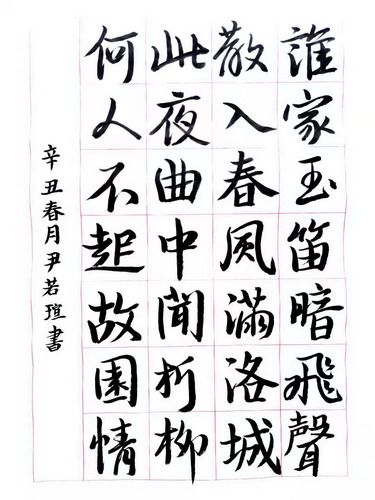 誰家玉笛暗飛聲
散入春風滿洛城
此夜曲中聞折柳
何人不起故園情
辛丑春月尹若瑄書